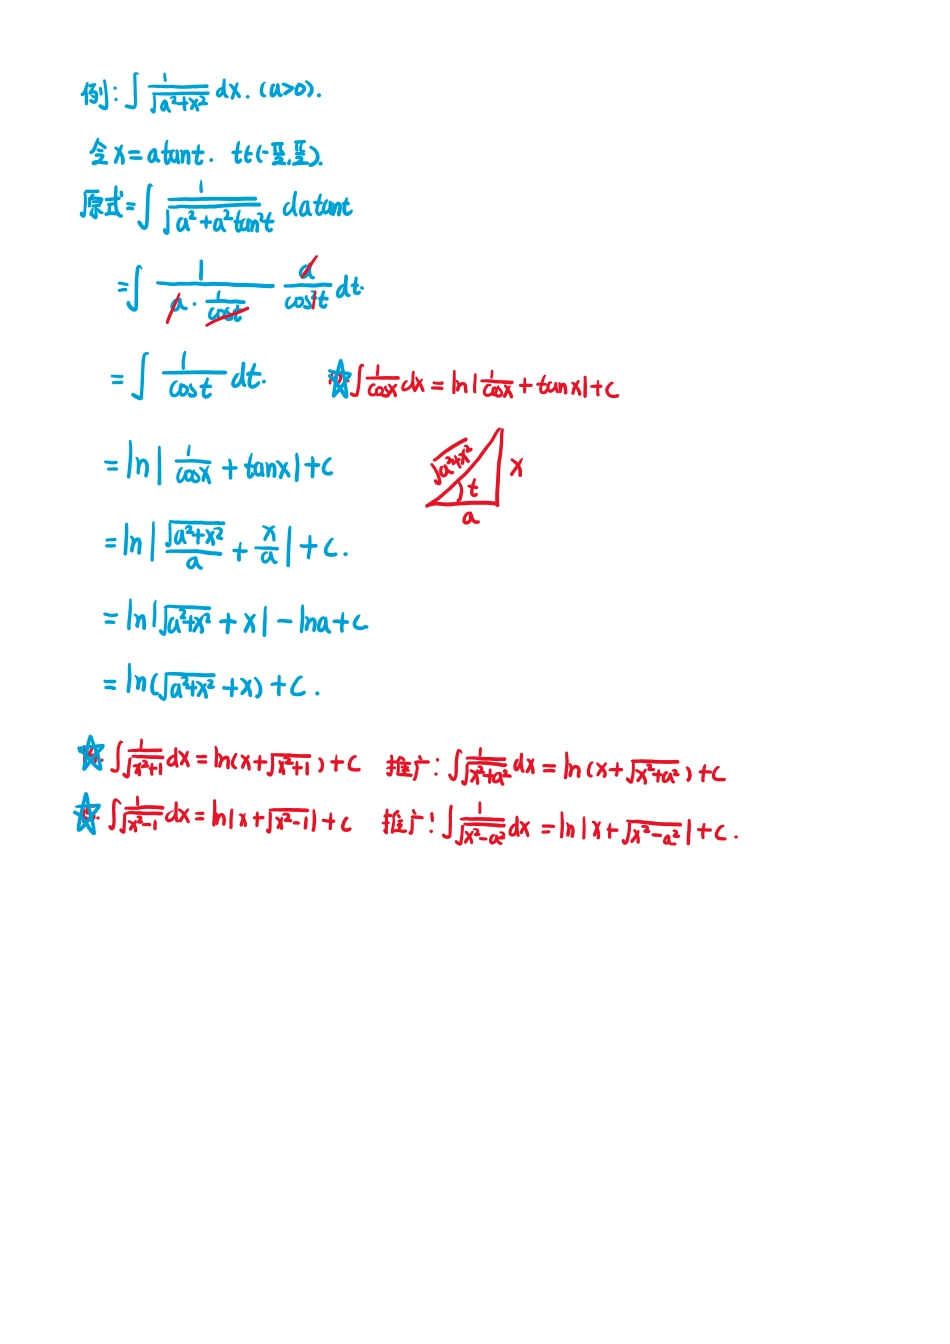 例: ∫ 1/√(a²+x²) dx. (a>0).
令 x = a tant. t∈(-π/2, π/2).
原式= ∫ 1/√(a²+a²tan²t) d a tant
= ∫ 1/(a · 1/cost) a/cos²t dt.
= ∫ 1/cost dt. ∫ 1/cosx dx = ln|1/cosx + tanx|+C
= ln|1/cosx + tanx|+C
√(a²+x²) x t a
= ln|√(a²+x²)/a + x/a|+C.
= ln|√(a²+x²) + x| - lna+C
= ln(√(a²+x²) + x) + C.
∫ 1/√(x²+1) dx = ln(x+√(x²+1)) + C 推广: ∫ 1/√(x²+a²) dx = ln(x+√(x²+a²)) + C
∫ 1/√(x²-1) dx = ln|x+√(x²-1)| + C 推广: ∫ 1/√(x²-a²) dx = ln|x+√(x²-a²)| + C.